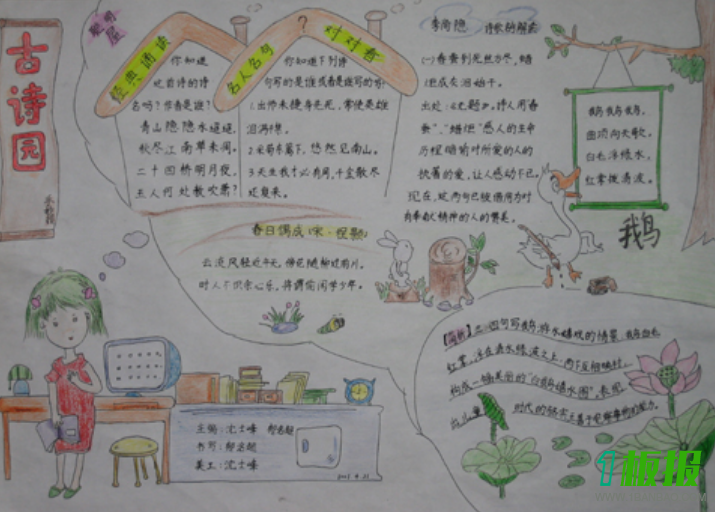 古诗园
经典诵读
你知道
这首诗的诗
名吗？作者是谁？
青山隐隐水迢迢，
秋尽江南草未凋。
二十四桥明月夜，
玉人何处教吹箫？
名人名句
？
对对看
你知道下列诗
句写的是谁或者是谁写的吗？
1.出师未捷身先死，常使英雄
泪满襟。
2.采菊东篱下，悠然见南山。
3.天生我才必有用，千金散尽
还复来。
李商隐
诗歌的解读
(一)春蚕到死丝方尽，蜡
炬成灰泪始干。
出处：《无题》。诗人用"春
蚕"、"蜡炬"感人的生命
历程暗喻对所爱的人的
执着的爱，让人感动不已。
现在，这两句已被借用为对
有奉献精神的人的赞美。
鹅鹅鹅，
曲项向天歌，
白毛浮绿水，
红掌拨清波。
鹅
春日偶成（宋·程颢）
云淡风轻近午天，傍花随柳过前川。
时人不识余心乐，将谓偷闲学少年。
【简析】三、四句写鹅游水嬉戏的情景：鹅白毛
红掌，浮在清水绿波之上，
构成一幅美丽的"白鹅嬉水图"，表现
出儿童
时代的骆宾王善于观察事物的能力。
主编：沈士峰
书写：
美工：沈士峰
1板报